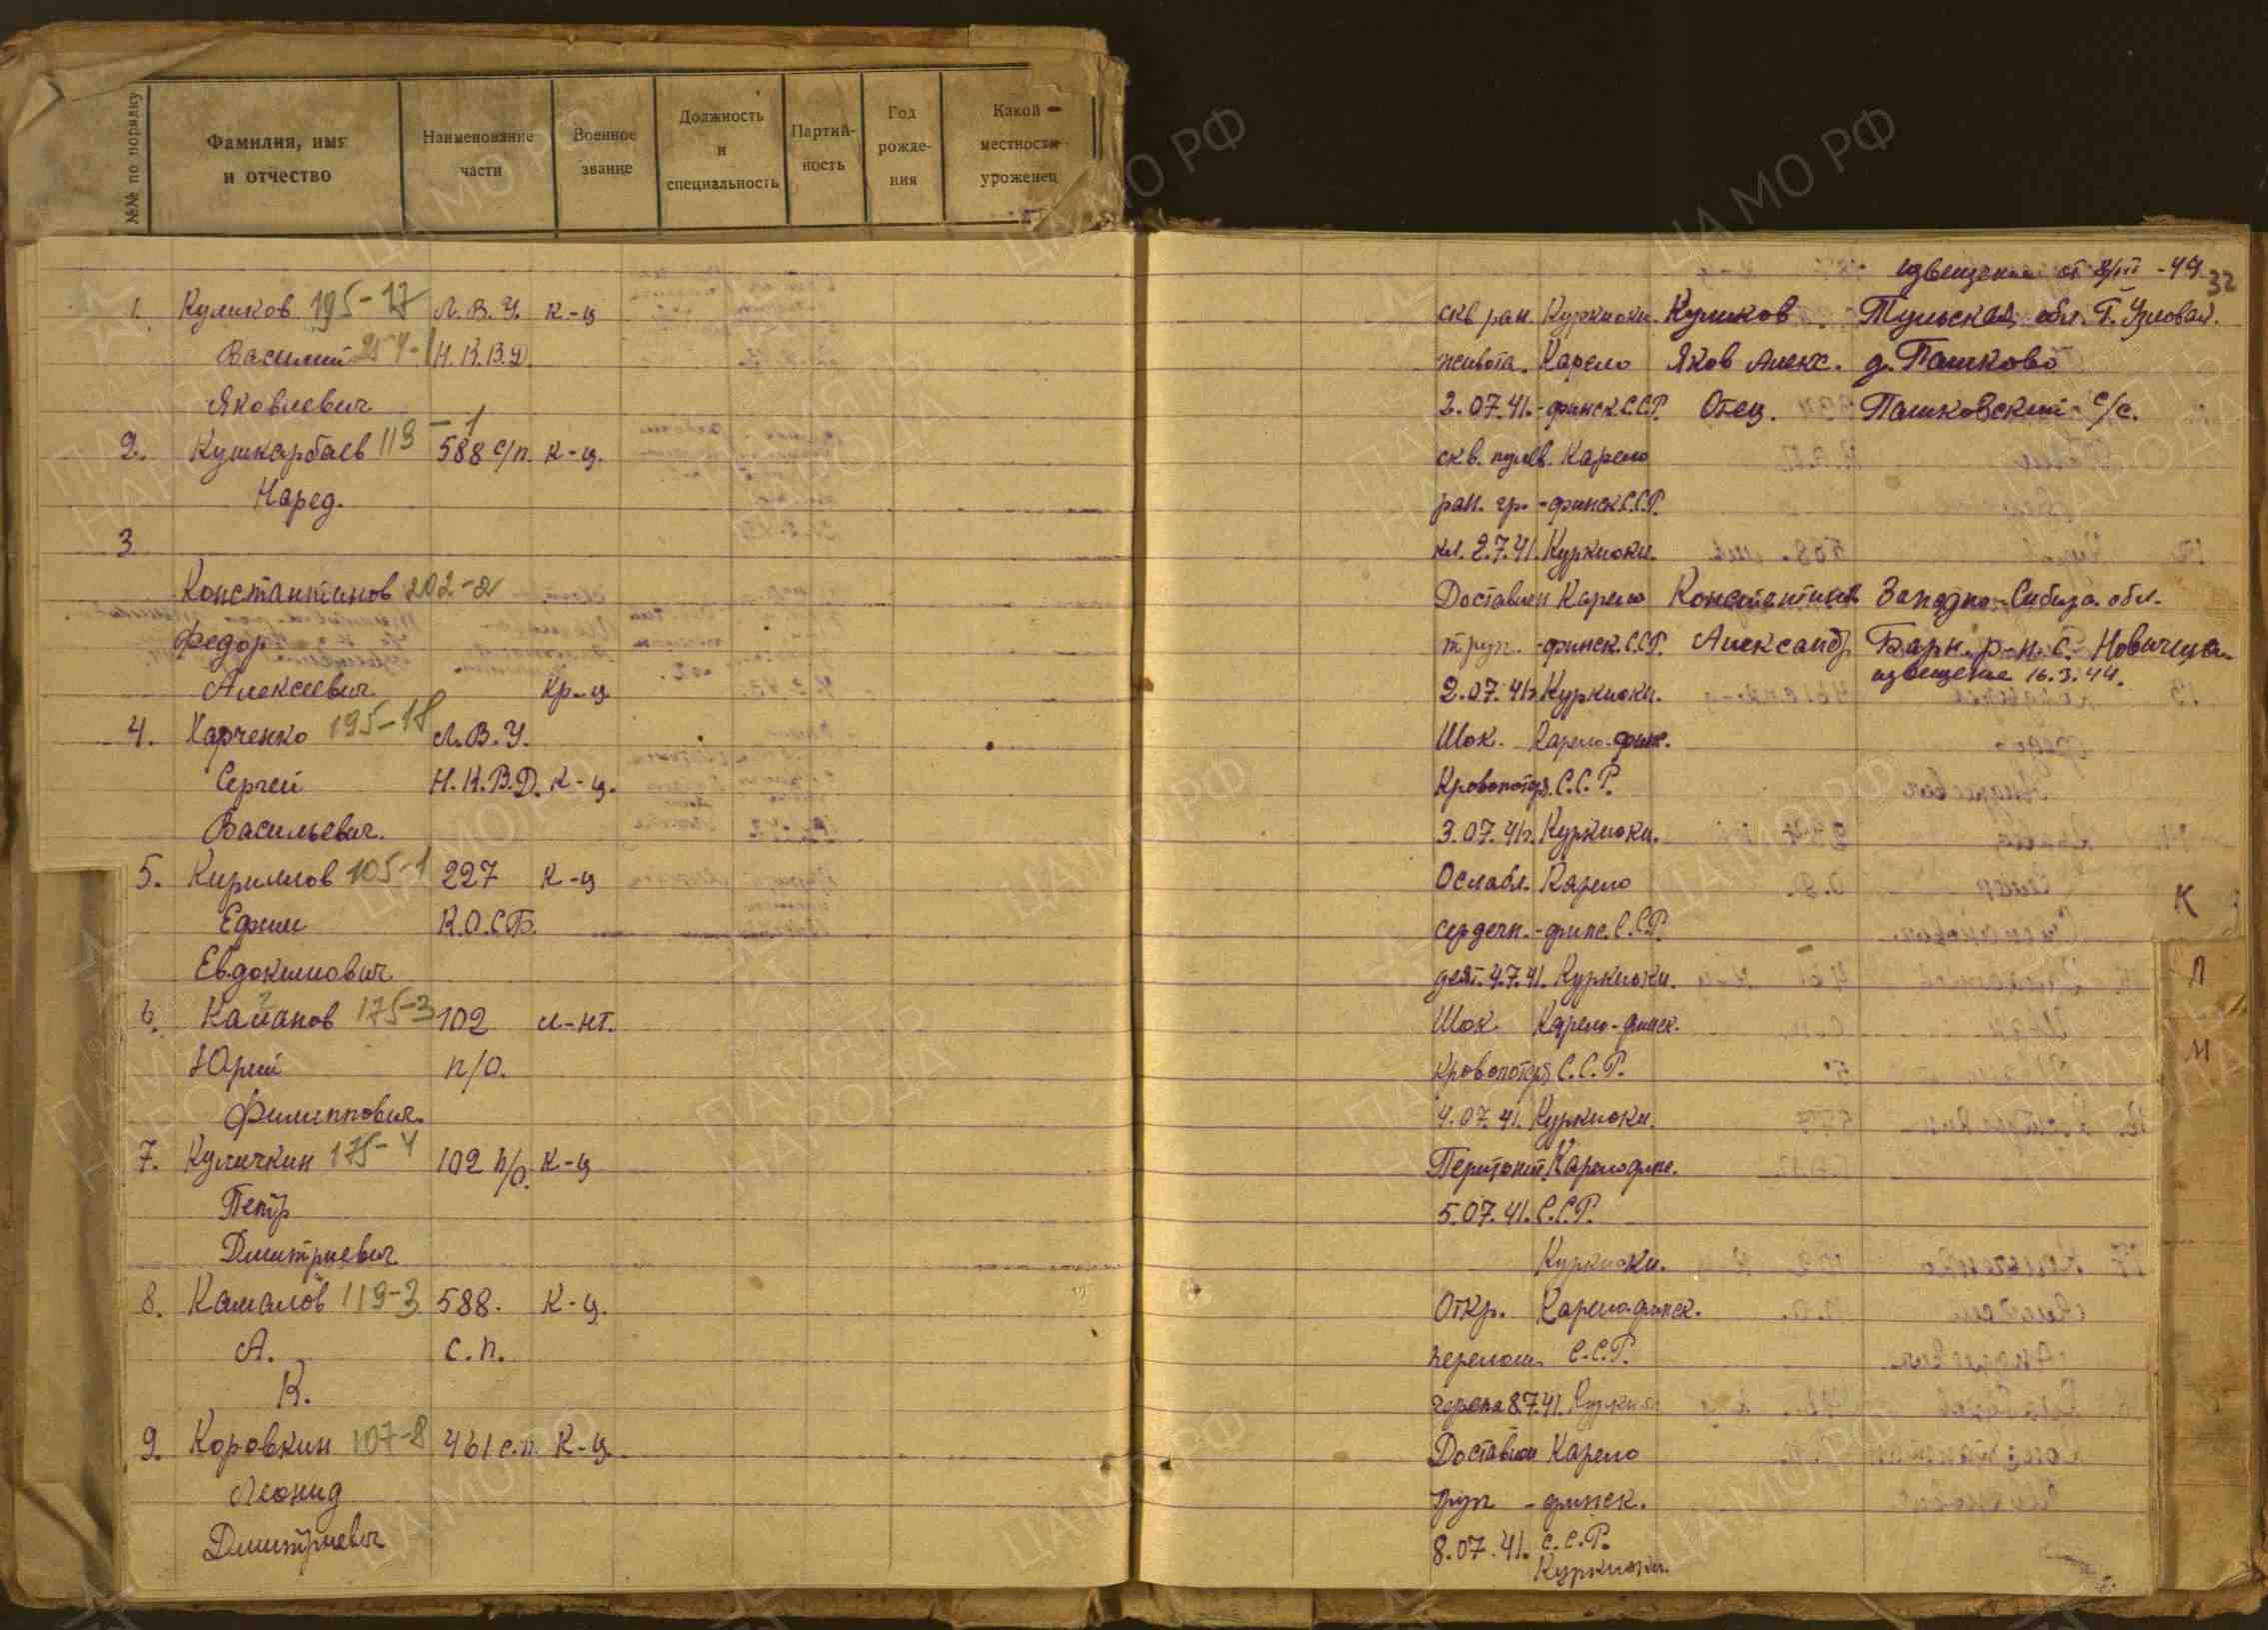 №№ по порядку
Фамилия, имя и отчество
Наименование части
Военное звание
Должность и специальность
Партий-ность
Год рожде-ния
Какой местности уроженец
извещение от -49
32
1. Куликов 195-17 Л.В.У. к-ц скв ран. Куркиоки. Куликов Тульская обл. Г. Узловая.
Василий Н.К.В.Д. живота. Карело Яков Алекс. д. Пашково
Яковлевич 2.07.41. -финск С.С.Р. Отец. Пашковский с/с.
2. Кушкарбаев 119-1 588 с/п. к-ц. скв. пулев. Карело
Наред. ран. гр. -финск С.С.Р.
3 кл. 2.7.41. Куркиоки.
Константинов 202-2 Доставлен Карело Константинов Западно-Сибир. обл.
Федор труп. -финск. С.С.Р. Александр Барн. р-н. с.
Алексеевич Кр-ц 2.07.41г. Куркиоки. извещение 16.3.44.
4. Харченко 195-18 Л.В.У. Шок. Карело-финс.
Сергей Н.К.В.Д. к-ц. Кровопотеря. С.С.Р.
Васильевич. 3.07.41г. Куркиоки.
5. Кириллов 105-1 227 к-ц Ослабл. Карело К
Ефим К.О.С.Б. сердечн. -финс. С.С.Р.
Евдокимович деят. 4.7.41. Куркиоки. Л
6. Кайанов 175-3 102 л-нт. Шок. Карело-финск.
Юрий п/о. Кровопотеря С.С.Р. М
Филиппович. 4.07.41. Куркиоки.
7. Куличкин 175-4 102 п/о. к-ц Перитонит. Карелофинс.
Петр 5.07.41. С.С.Р.
Дмитриевич Куркиоки.
8. Камалов 119-3 588. к-ц. Откр. Карелофинск.
А. с.п. перелом С.С.Р.
К. черепа 8.7.41. Куркио
9. Коровкин 107-8 461 с.п. К-ц. Доставлен Карело
Леонид труп -финск.
Дмитриевич 8.07.41. С.С.Р.
Куркиоки.
ЦА МО РФ
ПАМЯТЬ НАРОДА